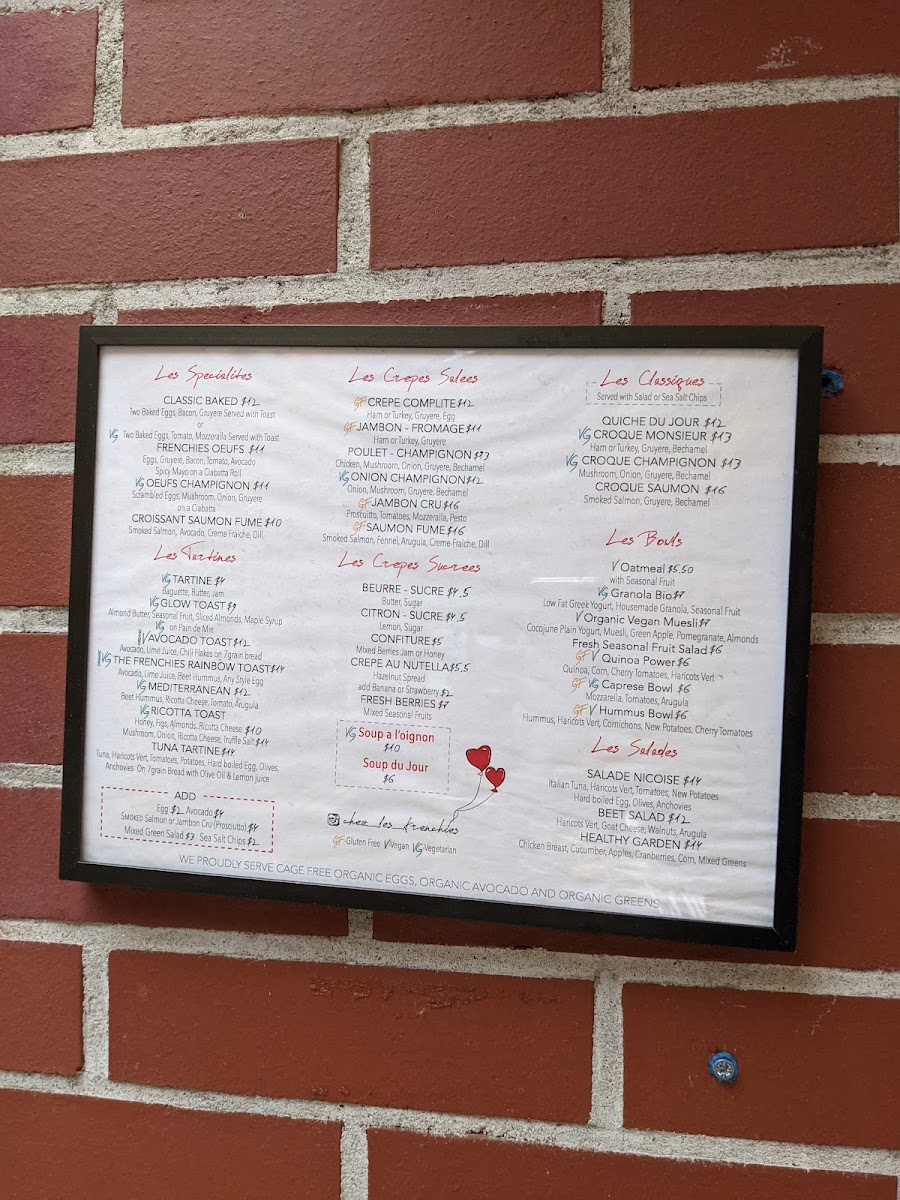 Les Specialites
CLASSIC BAKED $12
Two Baked Eggs, Bacon, Gruyere Served with Toast
or
VG Two Baked Eggs, Tomato, Mozzeralla Served with Toast
FRENCHIES OEUFS $11
Eggs, Gruyere, Bacon, Tomato, Avocado
Spicy Mayo on a Ciabatta Roll
VG OEUFS CHAMPIGNON $11
Scrambled Eggs, Mushroom, Onion, Gruyere
on a Ciabatta
CROISSANT SAUMON FUME $10
Smoked Salmon, Avocado, Creme Fraiche, Dill
Les Tartines
VG TARTINE $4
Baguette, Butter, Jam
VG GLOW TOAST $9
Almond Butter, Seasonal Fruit, Sliced Almonds, Maple Syrup
VG on Pain de Mie
V AVOCADO TOAST $12
Avocado, Lime Juice, Chili Flakes on 7grain bread
VG THE FRENCHIES RAINBOW TOAST $14
Avocado, Lime Juice, Beet Hummus, Any Style Egg
VG MEDITERRANEAN $12
Beet Hummus, Ricotta Cheese, Tomato, Arugula
VG RICOTTA TOAST
Honey, Figs, Almonds, Ricotta Cheese $10
Mushroom, Onion, Ricotta Cheese, Truffle Salt $14
TUNA TARTINE $14
Tuna, Haricots Vert, Tomatoes, Potatoes, Hard boiled Egg, Olives,
Anchovies On 7grain Bread with Olive Oil & Lemon juice
ADD
Egg $2 Avocado $4
Smoked Salmon or Jambon Cru (Prosciutto) $4
Mixed Green Salad $3 Sea Salt Chips $2
Les Crepes Salees
GF CREPE COMPLITE $12
Ham or Turkey, Gruyere, Egg
GF JAMBON - FROMAGE $11
Ham or Turkey, Gruyere
POULET - CHAMPIGNON $13
Chicken, Mushroom, Onion, Gruyere, Bechamel
VG ONION CHAMPIGNON $12
Onion, Mushroom, Gruyere, Bechamel
GF JAMBON CRU $16
Proscuitto, Tomatoes, Mozzeralla, Pesto
GF SAUMON FUME $16
Smoked Salmon, Fennel, Arugula, Creme Fraiche, Dill
Les Crepes Sucrees
BEURRE - SUCRE $4.5
Butter, Sugar
CITRON - SUCRE $4.5
Lemon, Sugar
CONFITURE $5
Mixed Berries Jam or Honey
CREPE AU NUTELLA $5.5
Hazelnut Spread
add Banana or Strawberry $2
FRESH BERRIES $7
Mixed Seasonal Fruits
VG Soup a l'oignon
$10
Soup du Jour
$6
chez_les_frenchies
GF-Gluten Free V Vegan VG Vegetarian
Les Classiques
Served with Salad or Sea Salt Chips
QUICHE DU JOUR $12
VG CROQUE MONSIEUR $13
Ham or Turkey, Gruyere, Bechamel
VG CROQUE CHAMPIGNON $13
Mushroom, Onion, Gruyere, Bechamel
CROQUE SAUMON $16
Smoked Salmon, Gruyere, Bechamel
Les Bowls
V Oatmeal $5.50
with Seasonal Fruit
VG Granola Bio $7
Low Fat Greek Yogurt, Housemade Granola, Seasonal Fruit
V Organic Vegan Muesli $7
Cocojune Plain Yogurt, Muesli, Green Apple, Pomegranate, Almonds
Fresh Seasonal Fruit Salad $6
GF V Quinoa Power $6
Quinoa, Corn, Cherry Tomatoes, Haricots Vert
GF VG Caprese Bowl $6
Mozzarella, Tomatoes, Arugula
GF V Hummus Bowl $6
Hummus, Haricots Vert, Cornichons, New Potatoes, Cherry Tomatoes
Les Salades
SALADE NICOISE $14
Italian Tuna, Haricots Vert, Tomatoes, New Potatoes
Hard boiled Egg, Olives, Anchovies
BEET SALAD $12
Haricots Vert, Goat Cheese, Walnuts, Arugula
HEALTHY GARDEN $14
Chicken Breast, Cucumber, Apples, Cranberries, Corn, Mixed Greens
WE PROUDLY SERVE CAGE FREE ORGANIC EGGS, ORGANIC AVOCADO AND ORGANIC GREENS